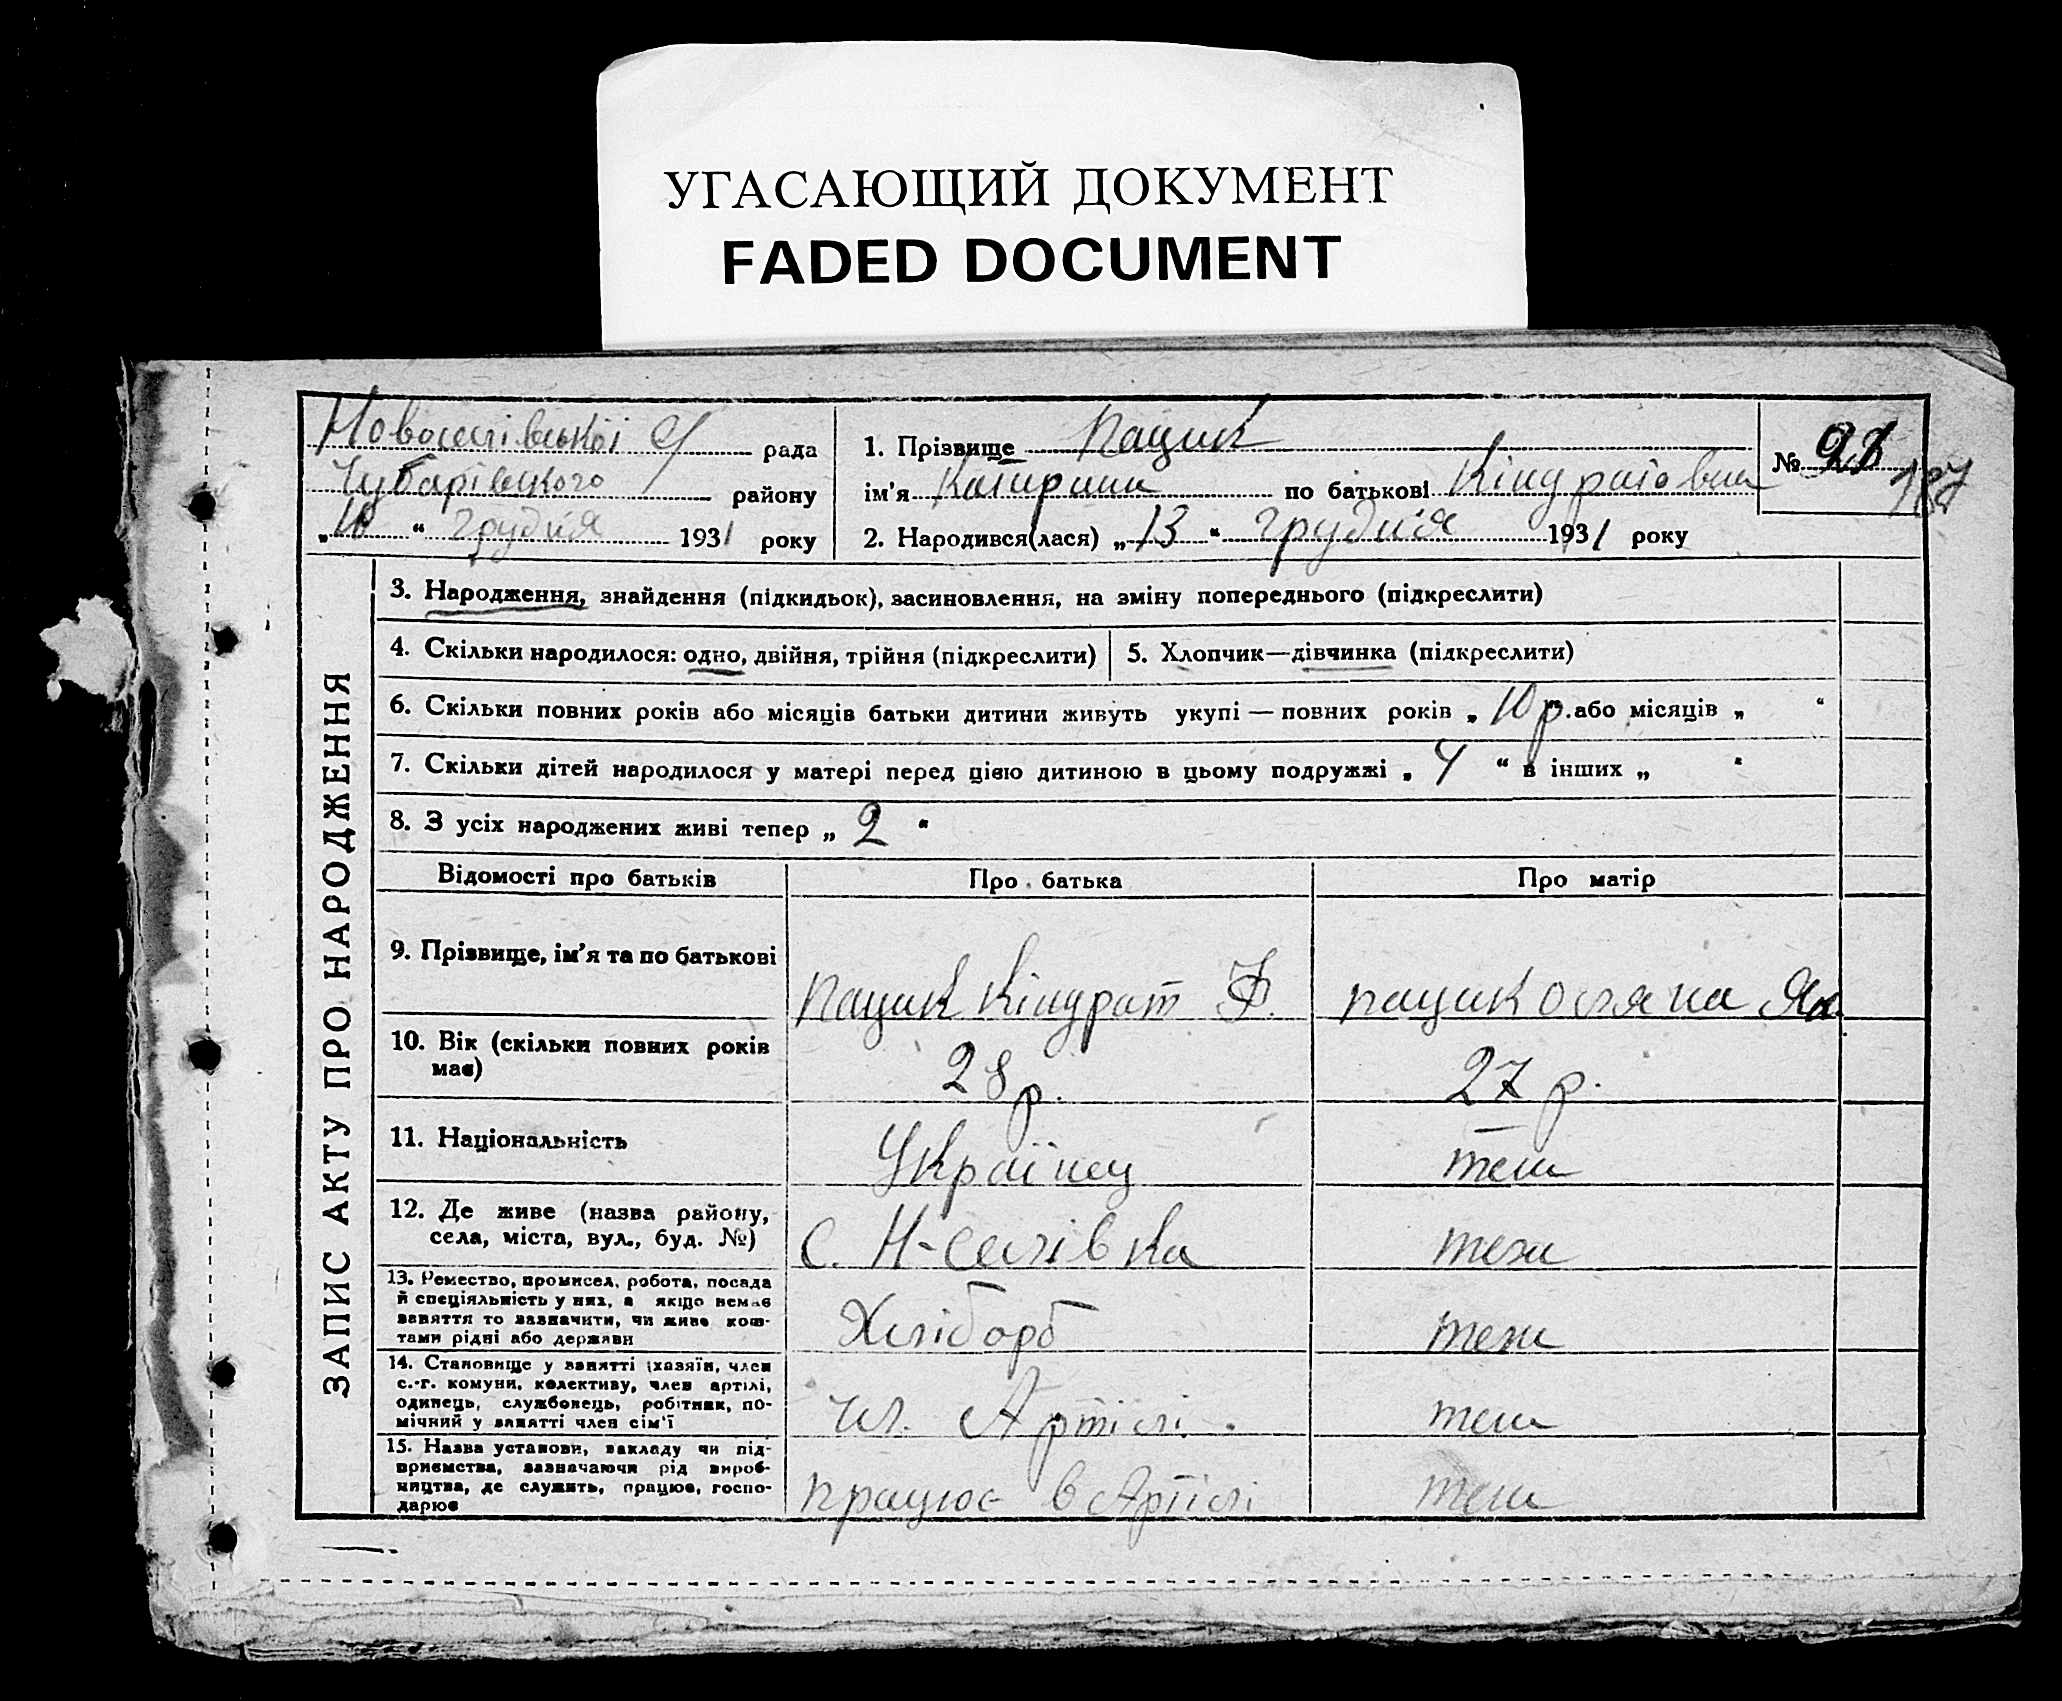 УГАСАЮЩИЙ ДОКУМЕНТ
FADED DOCUMENT
Новоселівської С/ рада
Чубарівського району
„ “ грудня 1931 року
1. Прізвище Пацик
ім'я Катирина по батькові Кіндратовна
2. Народився(лася) „13“ грудня 1931 року
№
187
ЗАПИС АКТУ ПРО НАРОДЖЕННЯ
3. Народження, знайдення (підкидьок), засиновлення, на зміну попереднього (підкреслити)
4. Скільки народилося: одно, двійня, трійня (підкреслити)
5. Хлопчик—дівчинка (підкреслити)
6. Скільки повних років або місяців батьки дитини живуть укупі — повних років „ 10 р. або місяців „ “
7. Скільки дітей народилося у матері перед цією дитиною в цьому подружжі „ 4 “ в інших „ “
8. З усіх народжених живі тепер „ 2 “
Відомості про батьків
Про батька
Про матір
9. Прізвище, ім'я та по батькові
Пацик Кіндрат
пацик
10. Вік (скільки повних років
має)
28 р.
27 р.
11. Національність
Українец
теж
12. Де живе (назва району,
села, міста, вул., буд. №)
с. Н-селівка
теж
13. Ремество, промисел, робота, посада
й спеціяльність у них, а якщо немає
заняття то зазначити, чи живе кош-
тами рідні або держави
Хліборб
теж
14. Становище у занятті (хазяїн, член
с.-г. комуни, колективу, член артілі,
одинець, службовець, робітник, по-
мічний у занятті член сім'ї
чл. Артілі.
теж
15. Назва установи, закладу чи під-
приємства, зазначаючи рід вироб-
ництва, де служить, працює, госпо-
дарює
працює в Артілі
теж